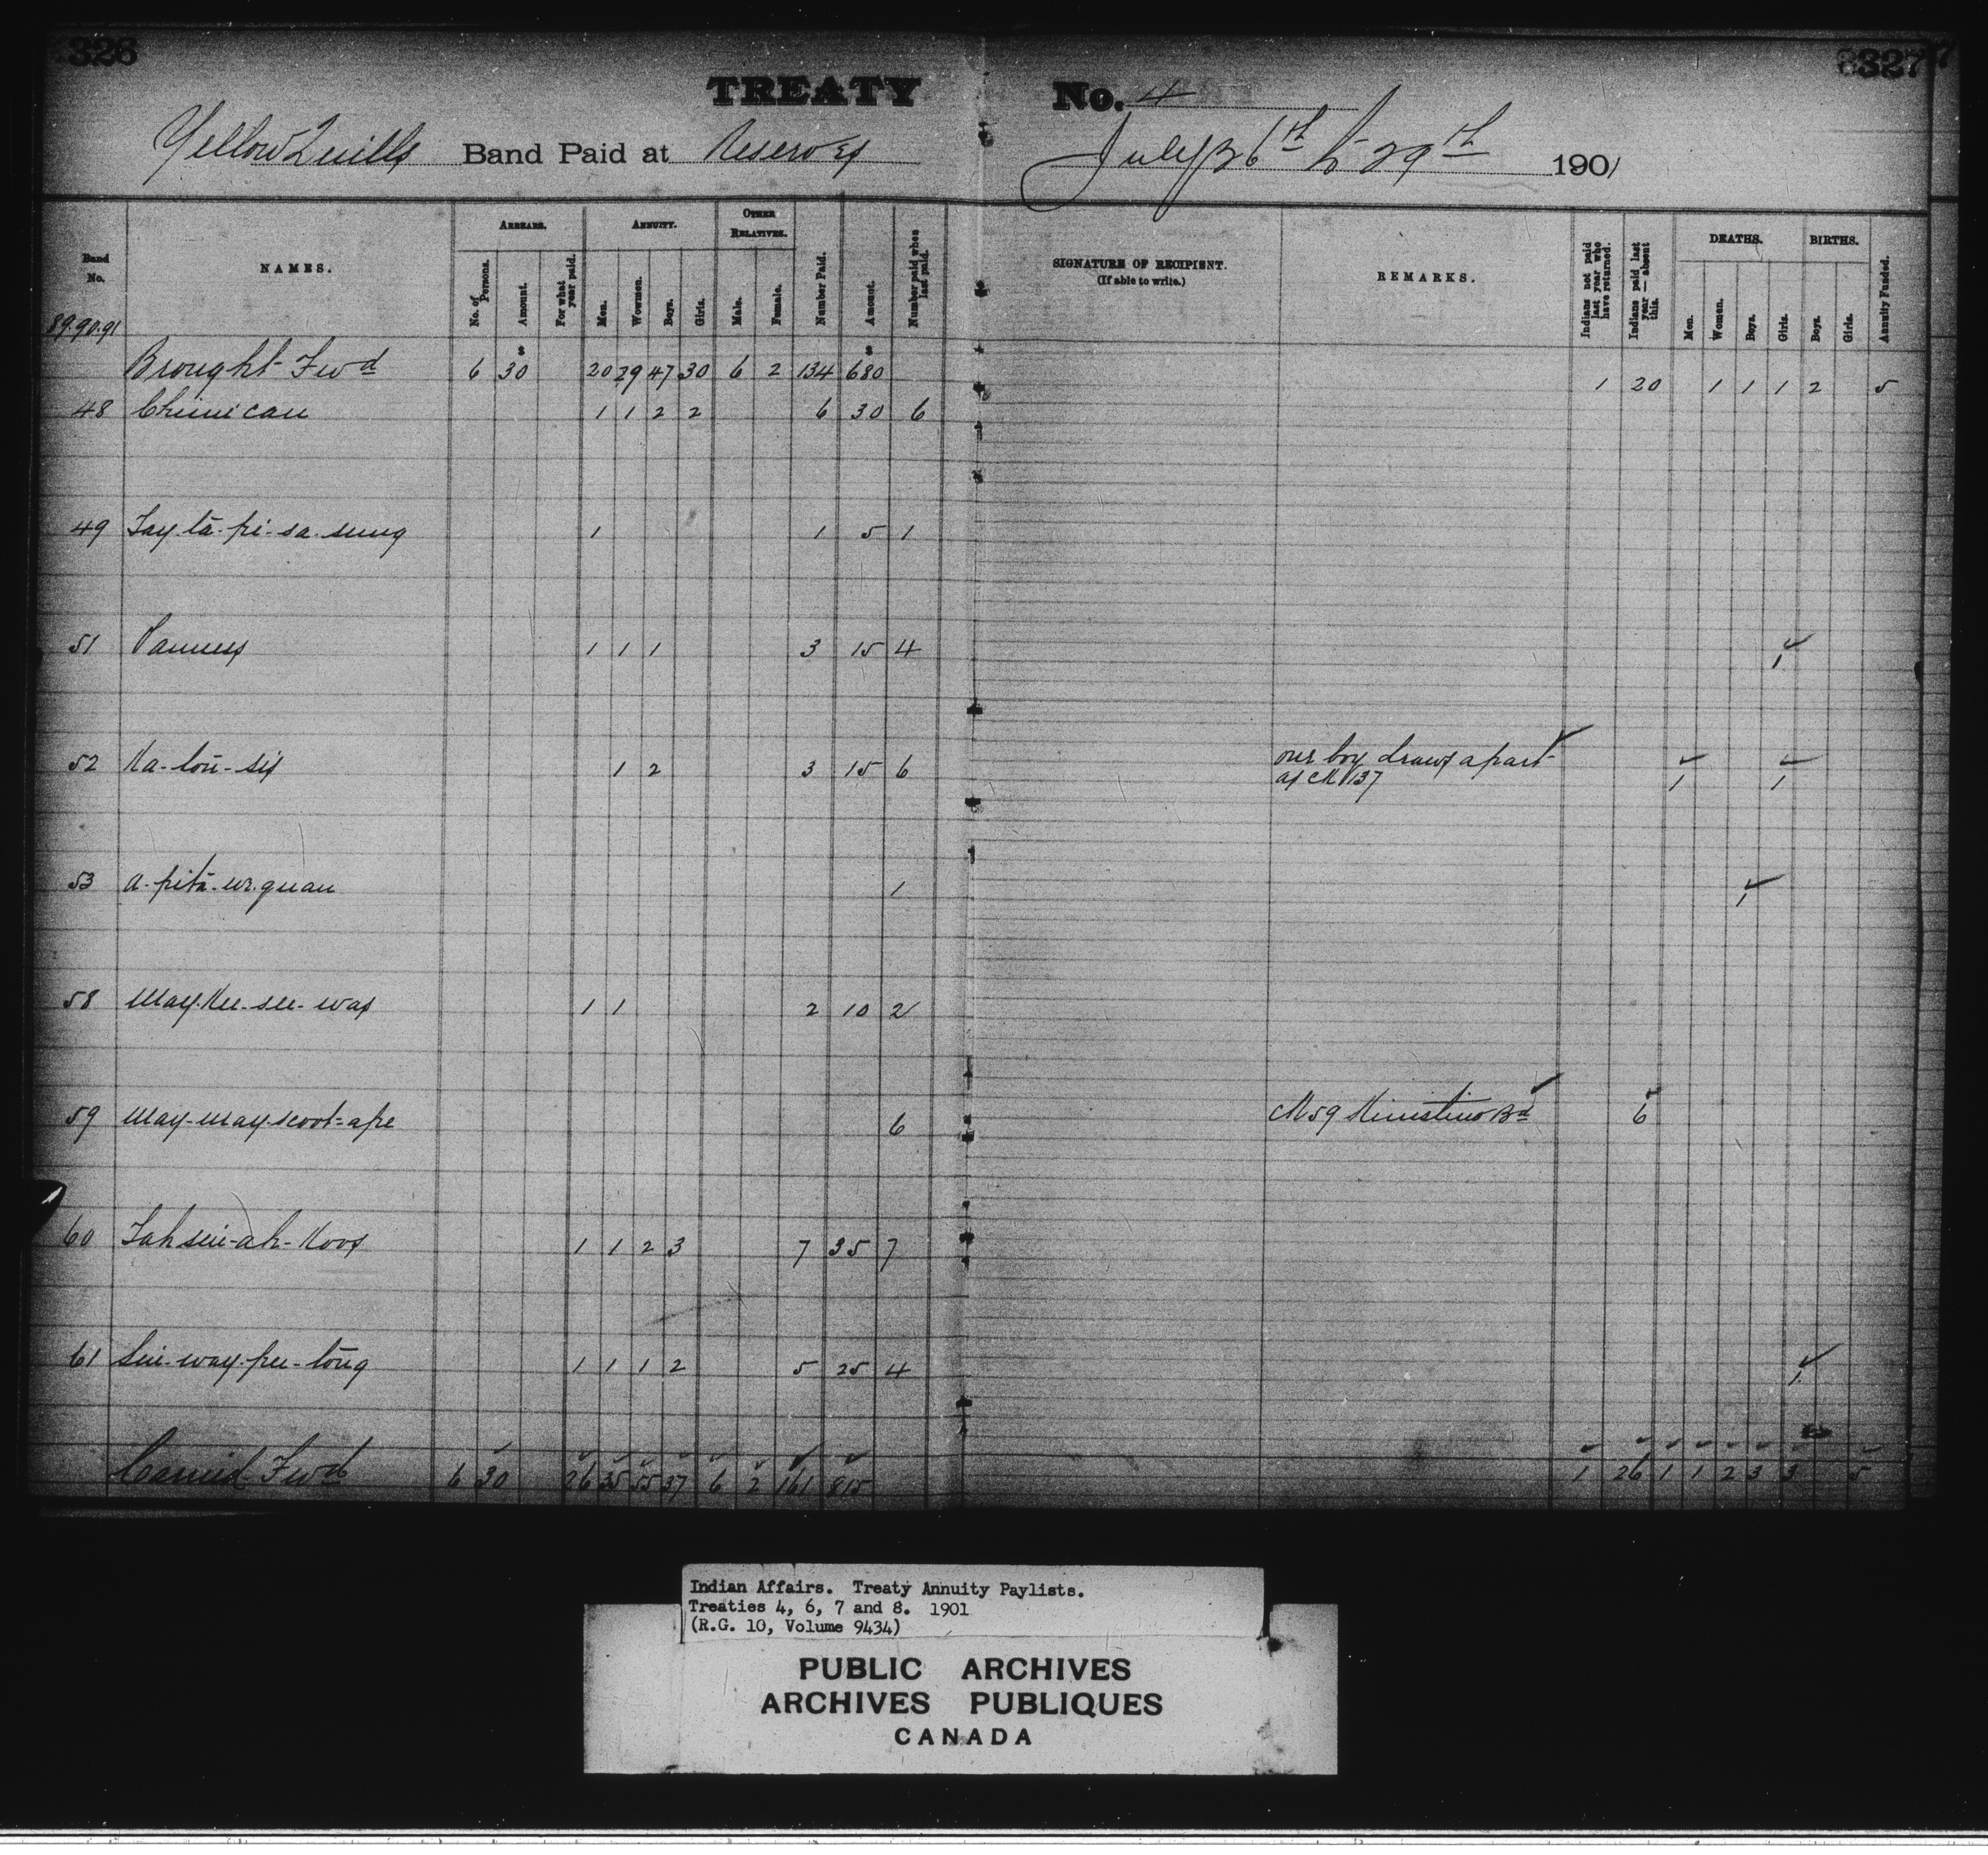 326
327
TREATY No. 4
Yellow Quills Band Paid at Reserves July 26th to 29th 1901
Band No.
NAMES.
ARREARS.
No. of Persons.
Amount.
For what year paid.
ANNUITY.
Men.
Wowmen.
Boys.
Girls.
OTHER RELATIVES.
Male.
Female.
Number Paid.
Amount.
Number paid when last paid.
SIGNATURE OF RECIPIENT.
(If able to write.)
REMARKS.
Indians not paid last year who have returned.
Indians paid last year — absent this.
DEATHS.
Men.
Women.
Boys.
Girls.
BIRTHS.
Boys.
Girls.
Annuity Funded.
89.90.91
Brought Fwd 6 30 20 29 47 30 6 2 134 680 1 20 1 1 1 2 5
48 Chimican 1 1 2 2 6 30 6
49 Tay-tā-pi-sa-sung 1 1 5 1
51 1 1 1 3 15 4 1
52 Ka-tou-sis 1 2 3 15 6 one boy draws apart 1 1
as No 137
53 A-pitā-we-quan 1 1
58 May-kee-see-was 1 1 2 10 2
59 May-may-scoot-ape 6 No 59 Kinistino Bd 6
60 Tahsin-ah-Koos 1 1 2 3 7 35 7
61 Sin-way-pee-tōng 1 1 1 2 5 25 4 1
Carried Fwd 6 30 26 35 55 37 6 2 161 815 1 26 1 1 2 3 3 5
Indian Affairs. Treaty Annuity Paylists.
Treaties 4, 6, 7 and 8. 1901
(R.G. 10, Volume 9434)
PUBLIC ARCHIVES
ARCHIVES PUBLIQUES
CANADA